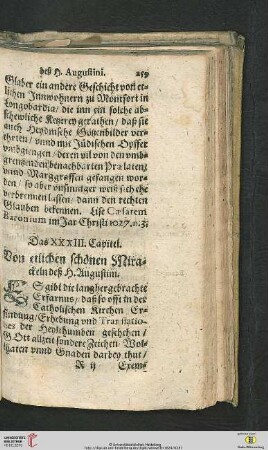 deß H. Augustini. 259
Glaber ein andere Geschicht von et-
lichen Innwohnern zu Montfort in
Longobardia/ die inn ein solche ab-
schewliche Ketzerey gerathen/ daß sie
auch Heydnische Götzenbilder ver-
ehreten/ vnnd mit Jüdischen Opffer
vmbgiengen/ deren vil von den vmb-
grentzenden benachbarten Prælaten
vnnd Marggraffen gefangen wor-
den/ so aber vnsinniger weiß sich ehe
verbrennen lassen/ dann den rechten
Glauben bekennen. Lise Cæsarem
Baronium im Jar Christi 1027. n. 3.
Das XXXIII. Capitel.
Von etlichen schönen Mira-
ckeln deß H. Augustini.
ES gibt die langhergebrachte
Erfarnus/ daß so offt in der
Catholischen Kirchen Er-
findung/ Erhebung vnd Translatio-
nes der Heylthumben geschehen/
GOtt allzeit sondere Zeichen/ Wol-
thaten vnnd Gnaden darbey thut/
R ij Exem-